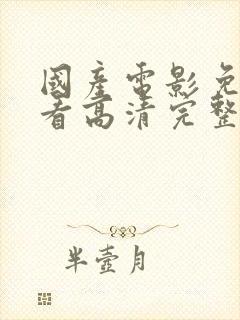 國產電影免
看高清完整
半壺月